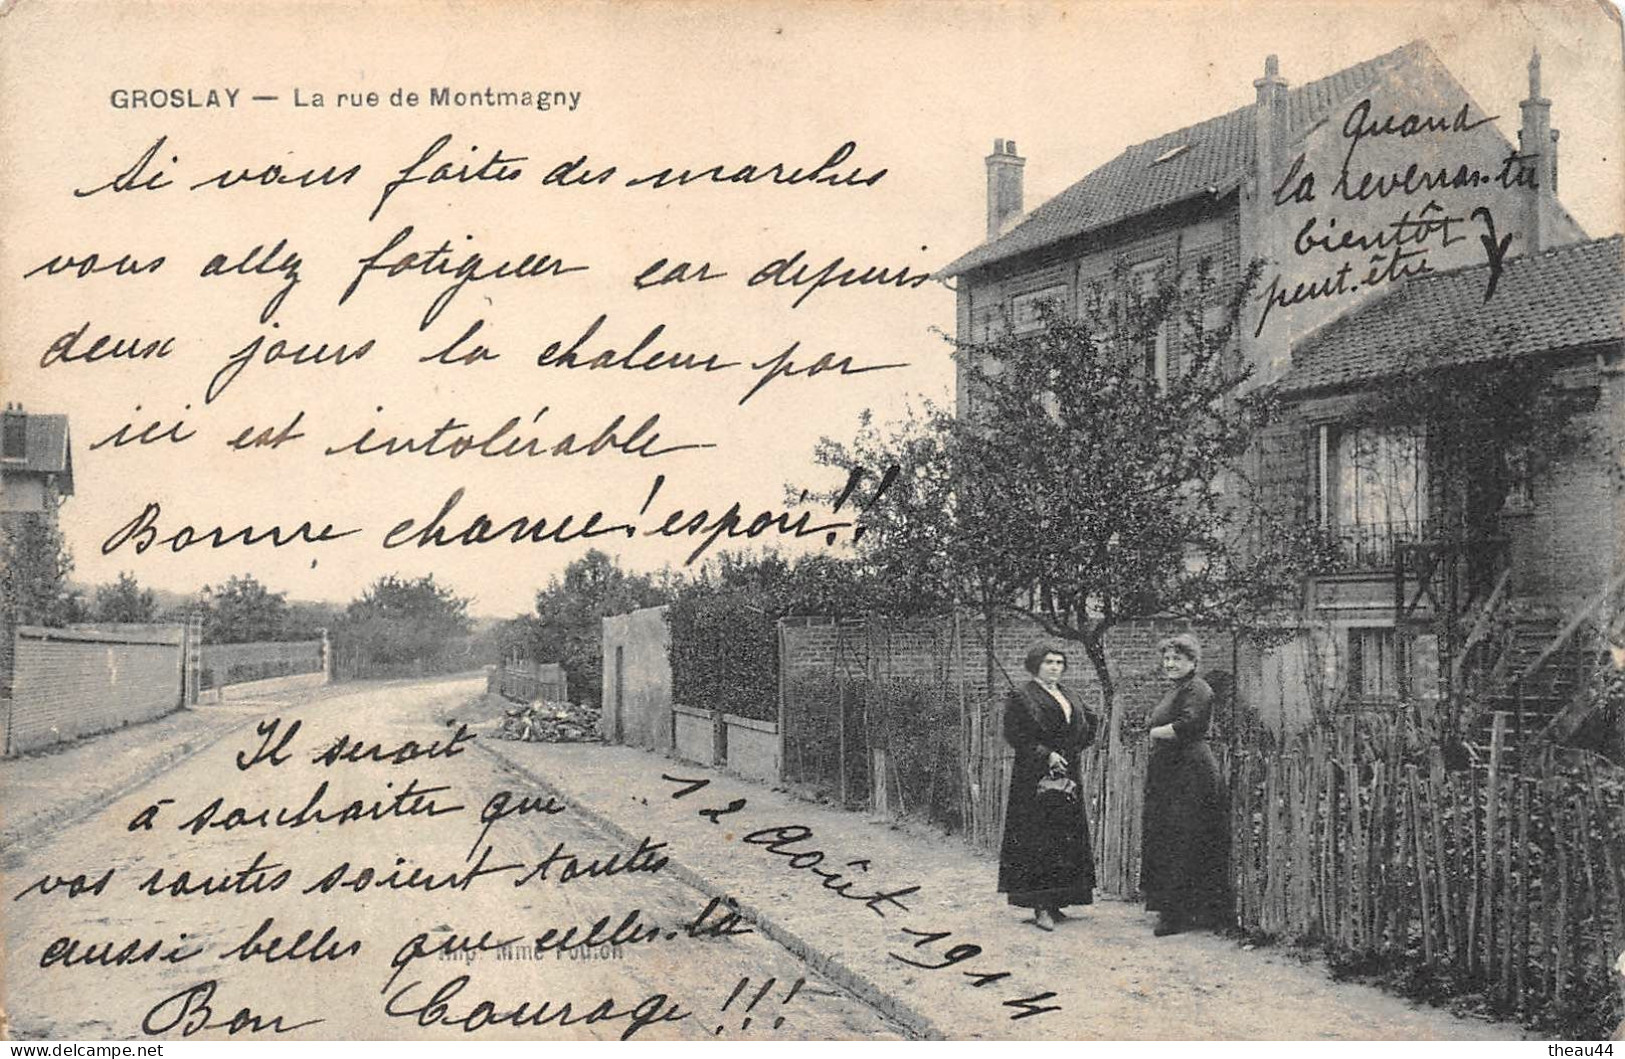 GROSLAY — La rue de Montmagny
Si vous faites des marches
vous allez fatiguer car depuis
deux jours la chaleur par
ici est intolérable
Bonne chance! espoir!!
Quand
la reverras-tu
bientôt
peut-être
Il serait
à souhaiter que
vos routes soient toutes
aussi belles que celles-là
Bon Courage!!!
12 Août 1914
Imp. Mme Poulon
theau44